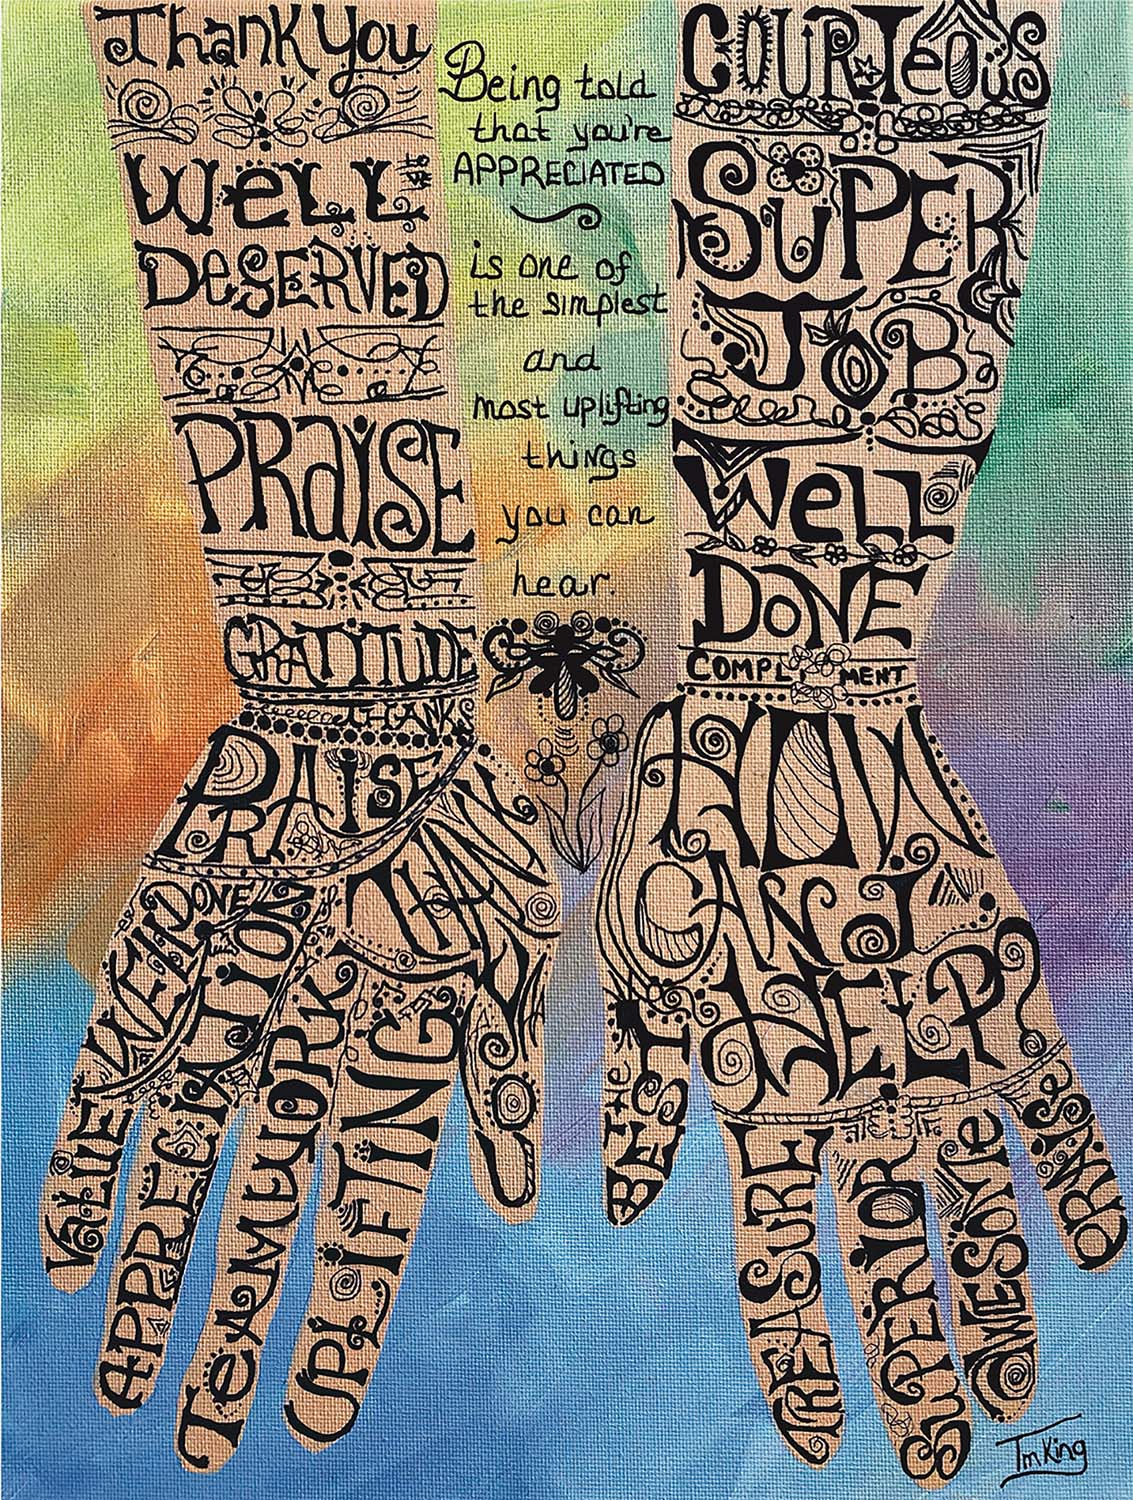 Thank You
Well
Deserved
Praise
Gratitude
Thank
Praise
Thank
You
Well Done
Value
Appreciation
Teamwork
Uplifting
Being told
that you're
APPRECIATED
is one of
the simplest
and
most uplifting
things
you can
hear.
Courteous
Super
Job
Well
Done
COMPLIMENT
How
Can I
Help
The
Best
Treasure
Superior
Awesome
Praise
TmKing